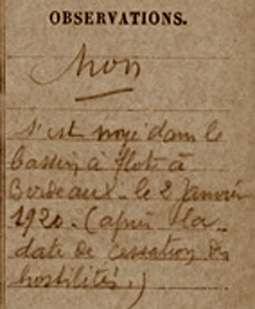 OBSERVATIONS.
Non
s'est noyé dans le
bassin à flot à
Bordeaux - le 2 Janvier
1920 - (après la
date de cessation des
hostilités.)